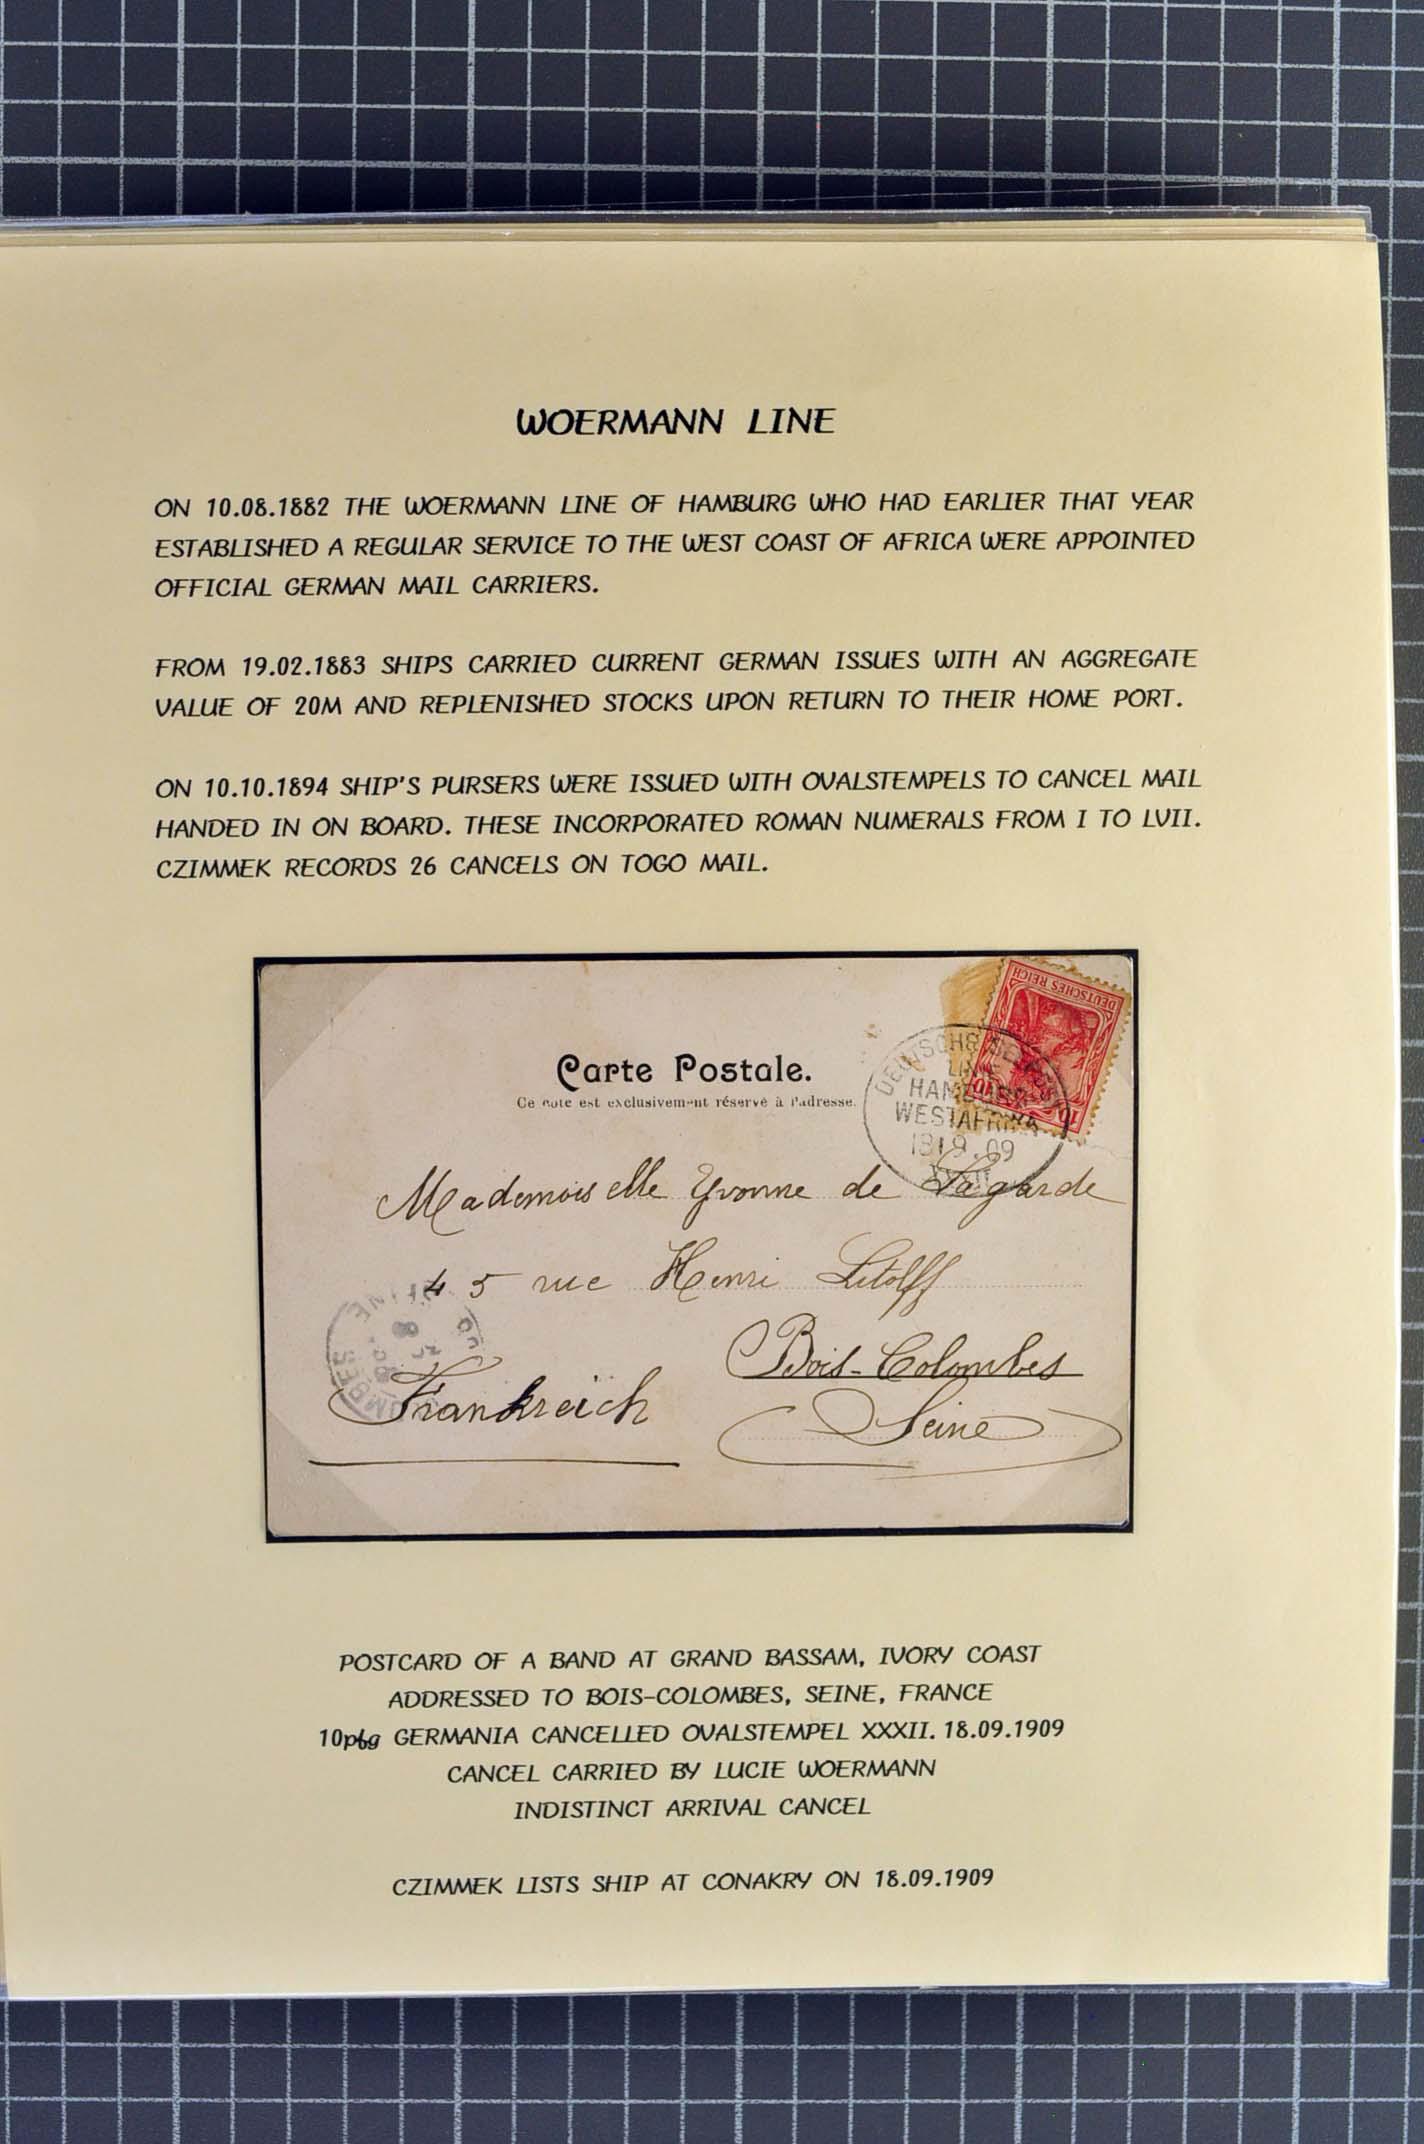 WOERMANN LINE
ON 10.08.1882 THE WOERMANN LINE OF HAMBURG WHO HAD EARLIER THAT YEAR
ESTABLISHED A REGULAR SERVICE TO THE WEST COAST OF AFRICA WERE APPOINTED
OFFICIAL GERMAN MAIL CARRIERS.
FROM 19.02.1883 SHIPS CARRIED CURRENT GERMAN ISSUES WITH AN AGGREGATE
VALUE OF 20M AND REPLENISHED STOCKS UPON RETURN TO THEIR HOME PORT.
ON 10.10.1894 SHIP'S PURSERS WERE ISSUED WITH OVALSTEMPELS TO CANCEL MAIL
HANDED IN ON BOARD. THESE INCORPORATED ROMAN NUMERALS FROM I TO LVII.
CZIMMEK RECORDS 26 CANCELS ON TOGO MAIL.
DEUTSCHES REICH
10 10
Carte Postale.
Ce cote est exclusivement réservé à l'adresse.
LINIE
HAMBURG
WESTAFRIKA
18.9.09
Mademoiselle Yvonne de Lagarde
45 rue Henri Litolff
Bois-Colombes
Frankreich
Seine
POSTCARD OF A BAND AT GRAND BASSAM, IVORY COAST
ADDRESSED TO BOIS-COLOMBES, SEINE, FRANCE
10pfg GERMANIA CANCELLED OVALSTEMPEL XXXII. 18.09.1909
CANCEL CARRIED BY LUCIE WOERMANN
INDISTINCT ARRIVAL CANCEL
CZIMMEK LISTS SHIP AT CONAKRY ON 18.09.1909